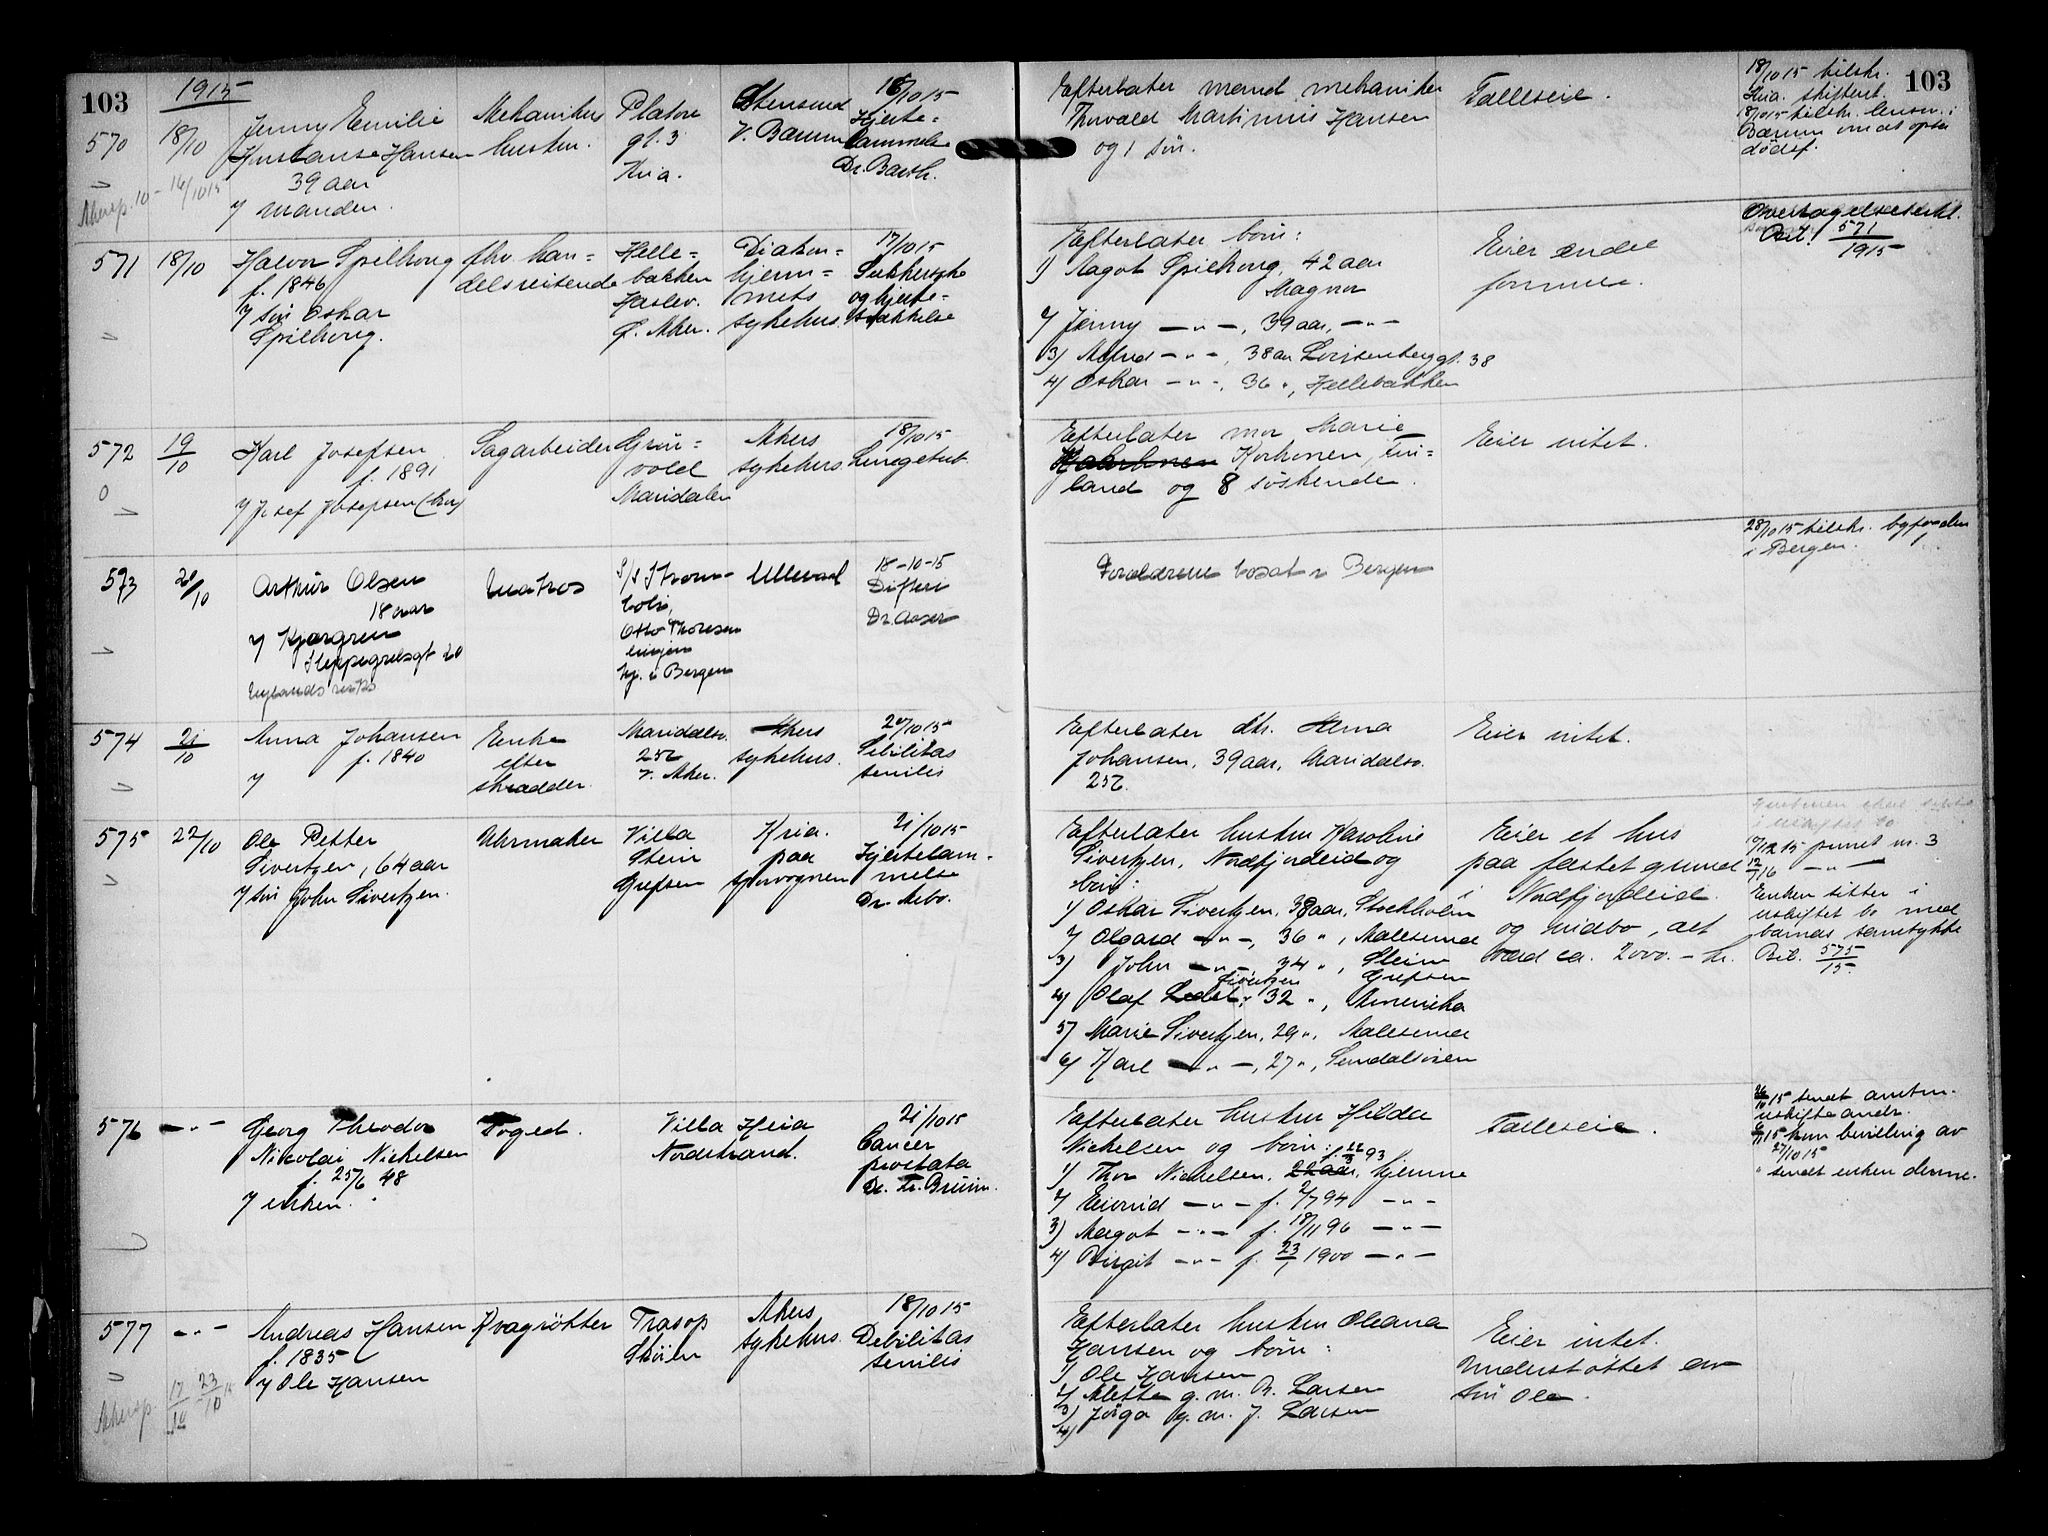 103
1915
570
18/10
Jenny Emilie
Konstanse Hansen
39 aar
v/ manden.
Mekanikers
hustru.
Platous
gt. 3
Kria.
Stensrud
V. Bærum
16/10 15
Hjerte-
lammelse
Dr. Barth.
Akersp. 10 - 16/10 15
Efterlater mand mekaniker
Thorvald Martinius Hansen
og 1 søn.
Fælleseie.
18/10 15 tilskr.
Kria. skifteret.
18/10 15 tilskr. lensm. i
Bærum om at opta
dødsf.
103
571
18/10
Halvor Spilhoug
f. 1846
v/ søn Oskar
Spilhoug.
fhv. han-
delsreisende
Helle-
bakken
Haslev.
Ø. Aker.
Diakon-
hjem-
mets
sykehus.
17/10 15
Sukkersyke
og hjerte-
svækkelse
Efterlater børn:
1) Aagot Spilhoug, 42 aar
Magnor
2) Jenny —"—, 39 aar, —"—
3) Alfred —"—, 38 aar Louisenberggt. 38
4) Oskar —"—, 36 ", Hellebakken
Eier endel
formue.
Overtagelseserkl.
Bil. 571
1915
572
19/10
Karl Josefsen
f. 1891
v/ Josef Josefsen (bror)
Sagarbeider
Grøn-
vold
Maridalen
Akers
sykehus.
18/10 15
Lungetub.
Efterlater mor Marie
Korhonen, Fin-
land og 8 søskende.
Eier intet.
573
20/10
Arthur Olsen
18 aar
v/ Kjærgren
Steppegrelsgt 20
Nylands verks
Matros
S/S Strom-
boli,
Otto Thoresen
linjen
hj. i Bergen
Ullevaal
18-10-15
Difteri
Dr. Aaser
Forældrene bosat i Bergen
28/10 15 tilskr. byfogden
i Bergen.
574
21/10
Anna Johansen
f. 1840
v/
Enke
efter
skrædder.
Maridalsv.
252
V. Aker.
Akers
sykehus.
20/10 15
Debilitas
senilis
Efterlater dtr. Alma
Johansen, 39 aar, Maridalsv.
252.
Eier intet.
575
22/10
Ole Petter
Sivertsen, 64 aar
v/ søn John Sivertsen.
Uhrmaker
Villa
Stein
Grefsen
Kria.
paa
sporvognen
21/10 15
Hjertelam-
melse
Dr. Aebo.
Efterlater hustru Karoline
Sivertsen, Nordfjordeid og
børn:
1) Oskar Sivertsen, 38 aar, Stockholm
2) Olgard —"—, 36 ", Aalesund
3) John —"—, 34 ", Stein
Grefsen
4) Olaf Sivertsen, 32 ", Amerika
5) Marie Sivertsen, 29 ", Aalesund
6) Karl —"—, 27 ", Sundalsøren
Eier et hus
paa fæstet grund
i Nordfjordeid
og indbo, alt
værd ca. 2000.- kr.
17/12 15 purret m. 3
12/1 16 —"—
Enken sitter i
uskiftet bo med
barnas samtykke
Bil. 575
15.
576
—"—
Georg Theodor
Nikolai Nickelsen
f. 25/6 48
v/ enken.
Foged.
Villa Heia
Nordstrand.
21/10 15
Cancer
prostata
Dr. Fr. Bruun.
Efterlater hustru Hilda
Nickelsen og børn:
1) Thor Nickelsen, 22 aar, f. 22/3 93 hjemme
2) Eivind —"— f. 2/7 94 —"—
3) Margot —"— f. 18/11 96 —"—
4) Birgit —"— f. 23/1 1900 —"—
Fælleseie.
26/10 15 sendt amtm.
uskifteandr.
6/11 15 kom bevilling av
27/10 15
" sendt enken denne.
577
—"—
Andreas Hansen
f. 1835
v/ Ole Hansen
Kvægrøkter
Trasop
Skøien
Akers
sykehus.
18/10 15
Debilitas
senilis
Akersp. 17/10 - 23/10 15
Efterlater hustru Oleana
Hansen og børn:
1) Ole Hansen
2) Alette g. m. B. Larsen
3) Jørga g. m. J. Larsen
4)
Eier intet.
Understøttet av
søn Ole.